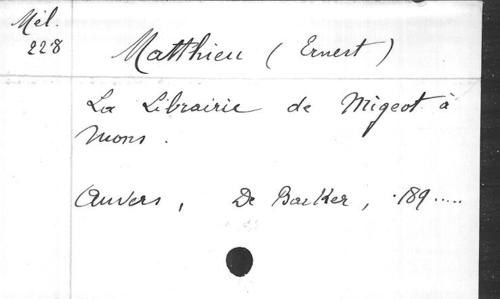 Mél.
228
Matthieu (Ernest)
La Librairie de Migeot à
Mons.
Anvers, De Backer, 189.....